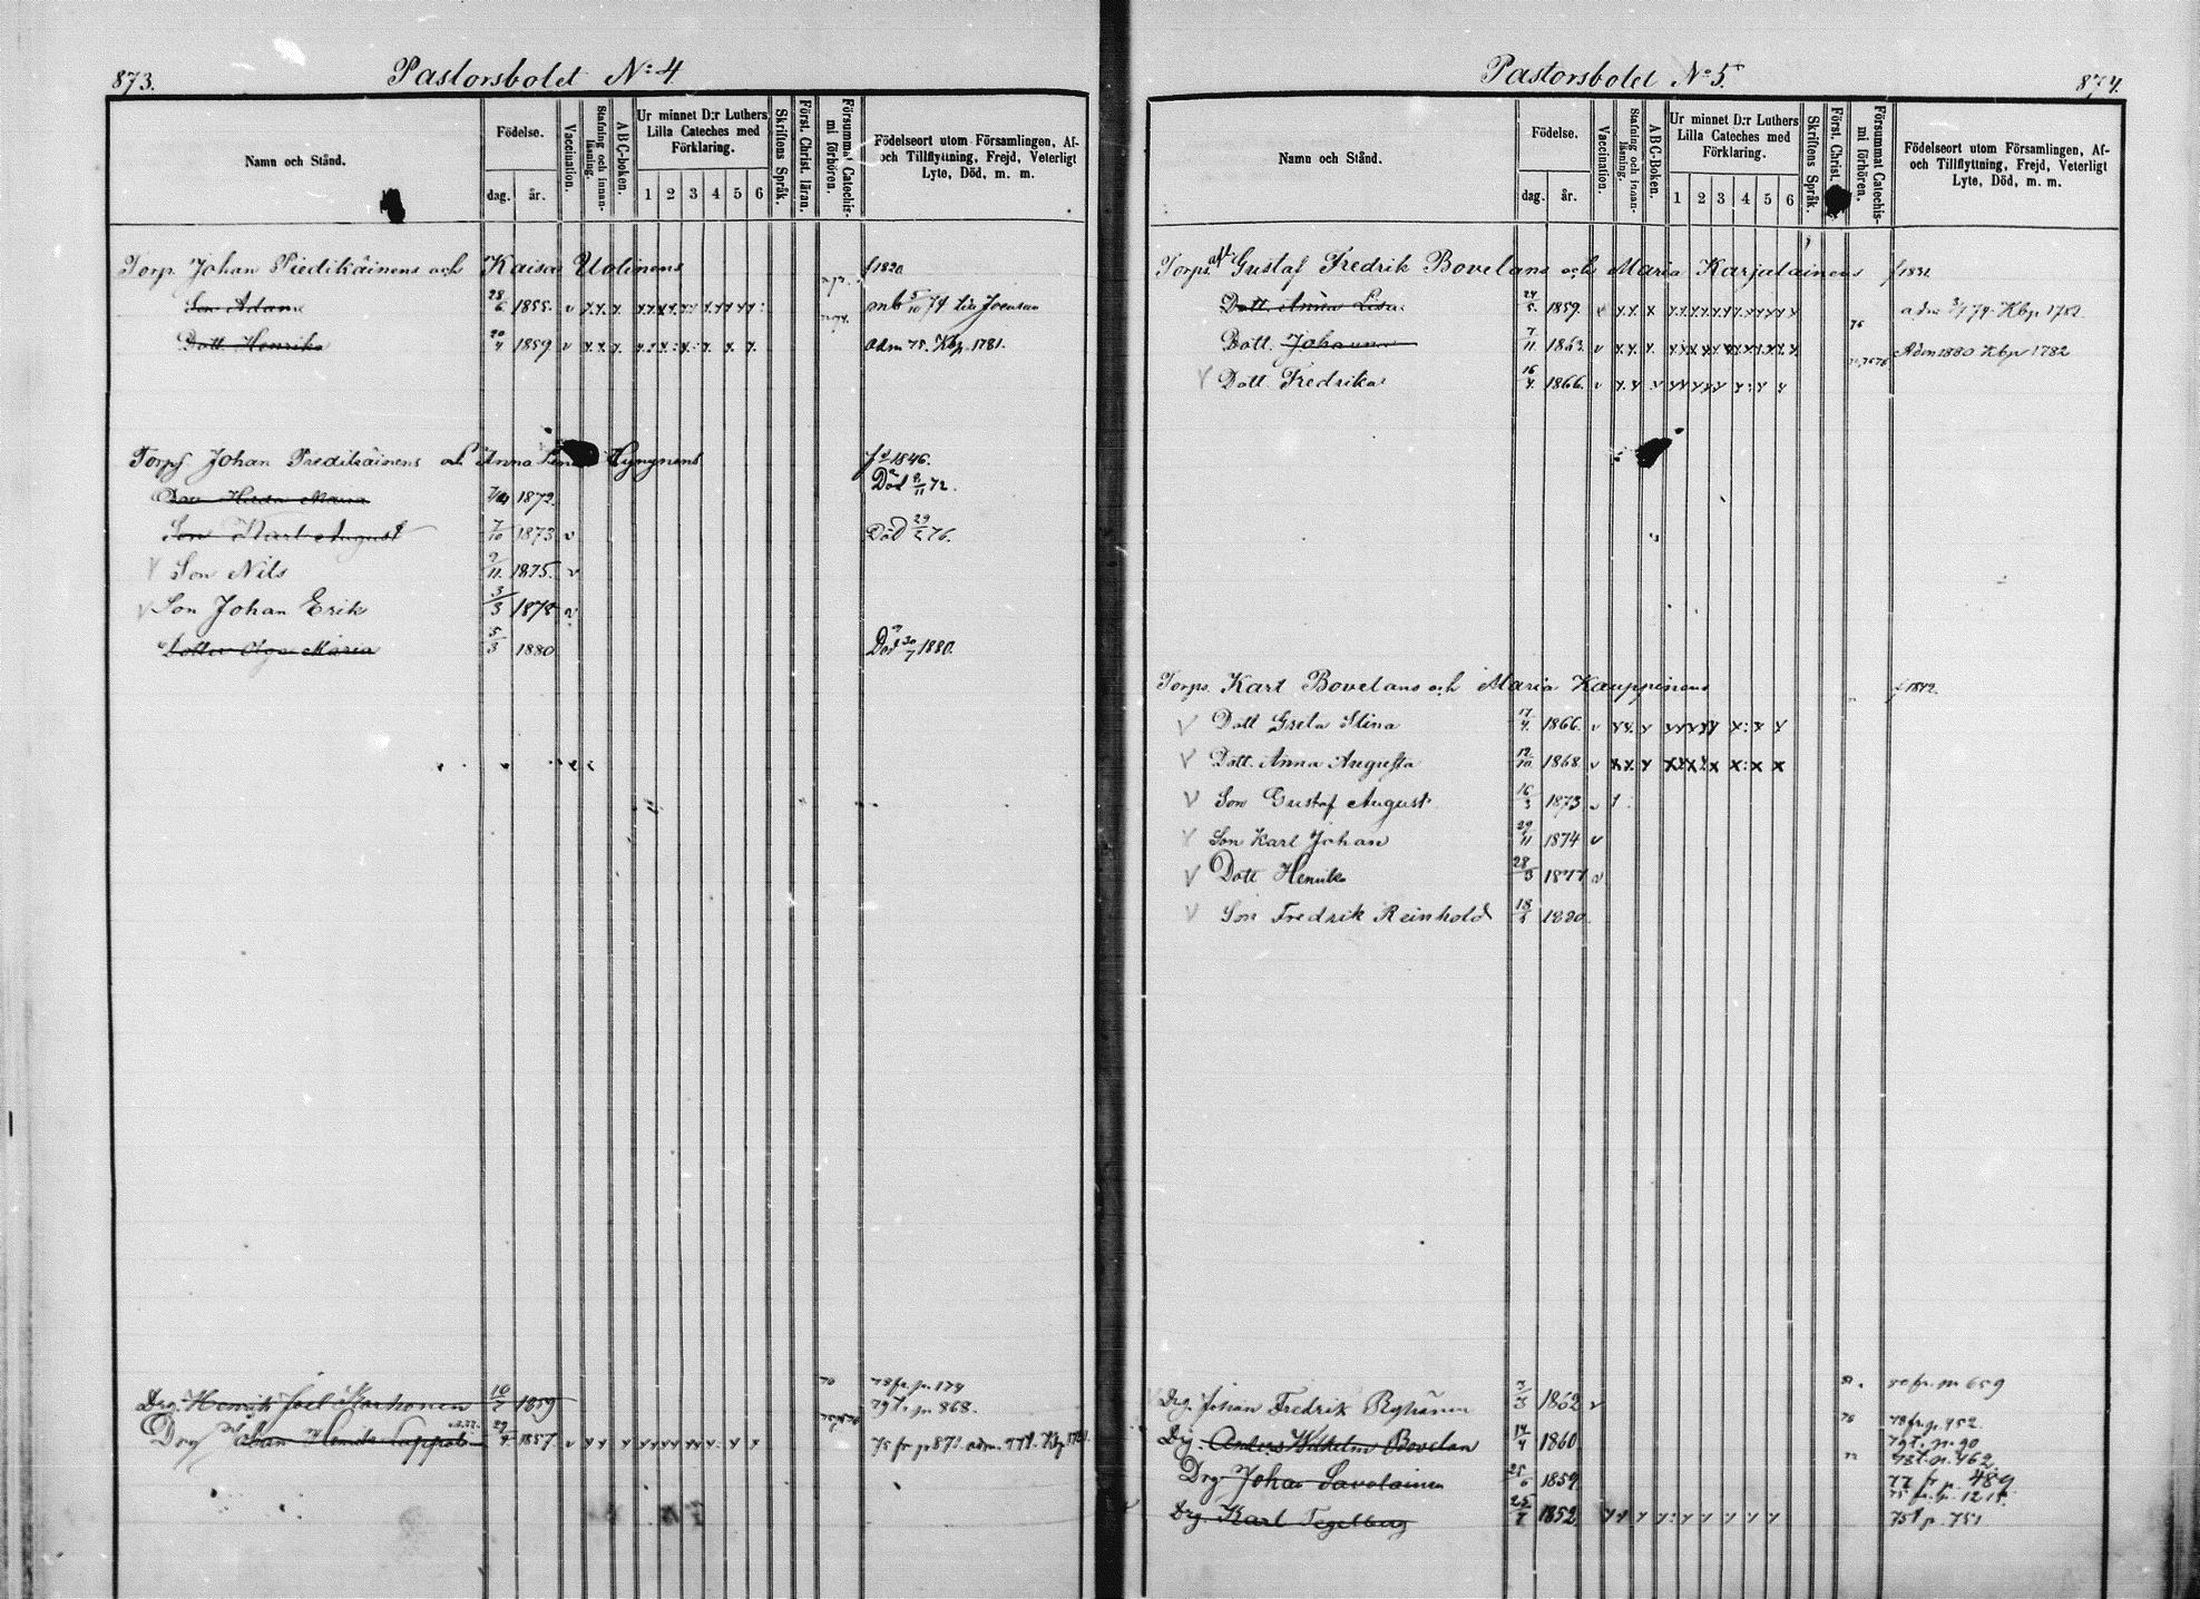 873.
Pastorsbolet No: 4
Namn och Stånd.
Födelse.
dag.
år.
Vaccination.
Stafning och innan-
läsning.
ABC-boken.
Ur minnet D:r Luthers
Lilla Cateches med
Förklaring.
1 2 3 4 5 6
Skriftens Språk.
Först. Christ. läran.
Försummat Catechis-
mi förhören.
Födelseort utom Församlingen, Af-
och Tillflyttning, Frejd, Veterligt
Lyte, Död, m. m.
Torp. Johan Piedikäinens och Kaisa Uolinens f 1820
Son Adam 28/6 1855. v mb 5/10 74 Joensuu
Dott Henrika 20/4 1859 v adm 78. Kbp. 1781.
Torp Johan Piedikäinens och Anna Hynynens fd 1846.
1872. Död 9/11 72.
Son Karl August 7/10 1873 v Död 29/5 76.
V Son Nils 9/11 1875. v
V Son Johan Erik 3/3 1878 v
Dotter Olga Maria 5/3 1880 Död 30/7 1880.
Drg. Henrik Joel Karhonen 10/7 1859 78 fr. p. 179
79 t. p. 868.
Drg 29/4 1857 v
Pastorsbolet No 5.
874.
Namn och Stånd.
Födelse.
dag.
år.
Vaccination.
Stafning och innan-
läsning.
ABC-Boken.
Ur minnet D:r Luthers
Lilla Cateches med
Förklaring.
1 2 3 4 5 6
Skriftens Språk.
Först. Christ.
Försummat Catechis-
mi förhören.
Födelseort utom Församlingen, Af-
och Tillflyttning, Frejd, Veterligt
Lyte, Död, m. m.
Torps. Gustaf Fredrik Bovelans och Maria Karjalainens
Dott. Anna Lisa 24/5 1859. v Kbp 1782
Dott. Johanna 7/11 1863. v Adm 1880 Kbp 1782
V Dott Fredrika 16/4 1866. v
Torps. Karl Bovelans och Maria Kauppinens f 1842.
V Dott Greta Stina 17/4 1866. v
V Dott. Anna Augusta 12/10 1868. v
V Son Gustaf August 16/3 1873 v
V Son Karl Johan 29/11 1874 v
V Dott Henrika 28/3 1877 v
V Son Fredrik Reinhold 18/4 1880.
Drg. Johan Fredrik 3/3 1862 v 80 fr. p. 659
Drg. Anders Wilhelm Bovelan 14/4 1860 78 fr. p. 952
79 t. p. 90
Drg. Johan Savolainen 25/6 1859 78 t. p. 462
77 fr p. 489
Drg. Karl Tegelberg 25/7 1852. 75 fr. p. 1215.
75 t p. 751